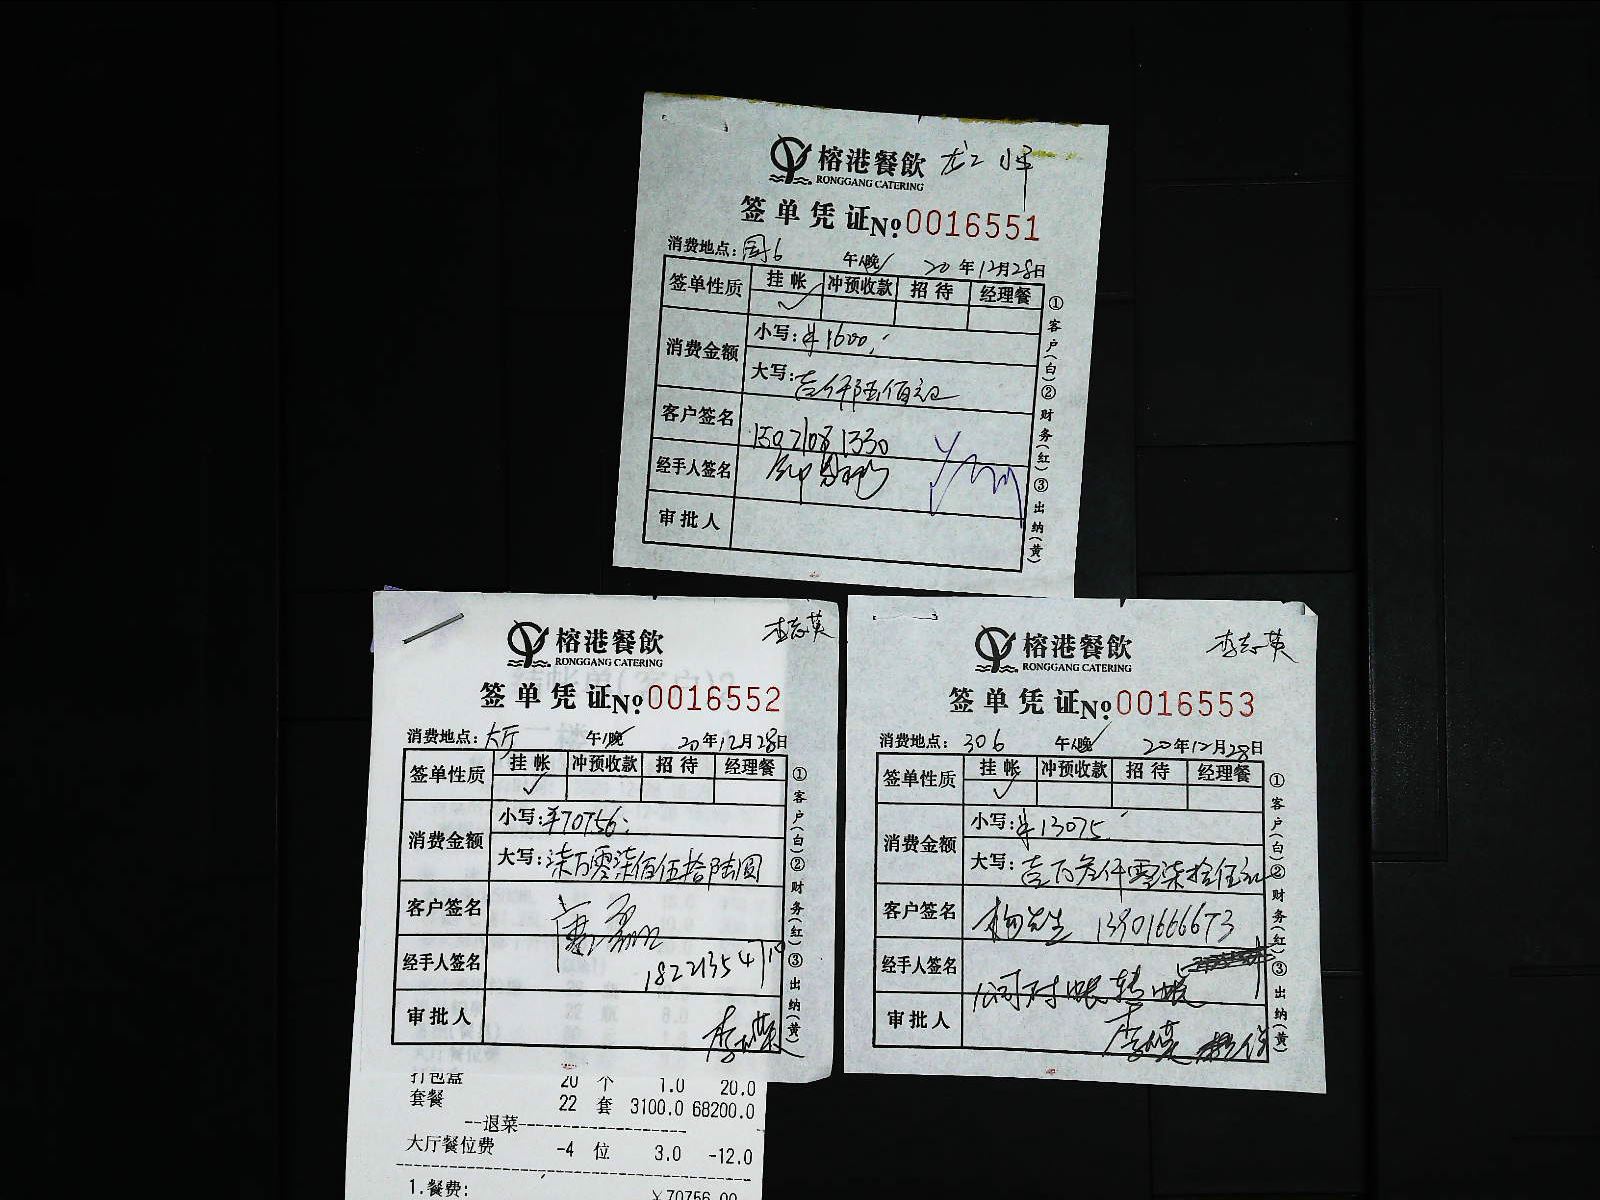 榕港餐飲
RONGGANG CATERING
签单凭证 №0016551
消费地点: 午/晚 20年12月28日
签单性质 挂帐 冲预收款 招待 经理餐
消费金额 小写: ¥1600.
大写: 壹仟陆佰元正
客户签名 15021081330
经手人签名
审批人
①客户(白)②财务(红)③出纳(黄)
榕港餐飲 李志英
RONGGANG CATERING
签单凭证 №0016552
消费地点: 大厅 午/晚 20年12月28日
签单性质 挂帐 冲预收款 招待 经理餐
消费金额 小写: ¥70756.
大写: 柒万零柒佰伍拾陆圆
客户签名
经手人签名
审批人
①客户(白)②财务(红)③出纳(黄)
打包盒 20 个 1.0 20.0
套餐 22 套 3100.0 68200.0
--退菜--
大厅餐位费 -4 位 3.0 -12.0
1.餐费: ¥70756.00
榕港餐飲 李志英
RONGGANG CATERING
签单凭证 №0016553
消费地点: 306 午/晚 20年12月28日
签单性质 挂帐 冲预收款 招待 经理餐
消费金额 小写: ¥13075.
大写: 壹万叁仟零柒拾伍元
客户签名 杨先生 13901666673
经手人签名 公司对帐转帐
审批人
①客户(白)②财务(红)③出纳(黄)